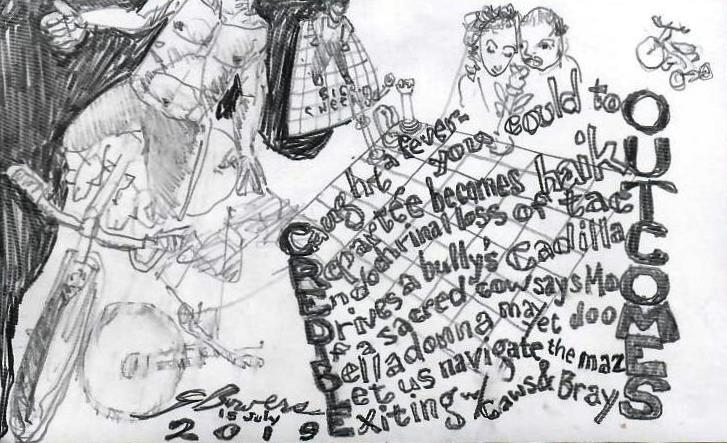 Caught a fever- you could toO
Repartee becomes haikU
Endochrinal loss of tacT
Drives a bully's CadillaC
If a sacred cow says MoO
Belladonna may yet dooM
Let us navigate the mazE
Exiting w/ Caws & BrayS
Bowers
15 July
2019